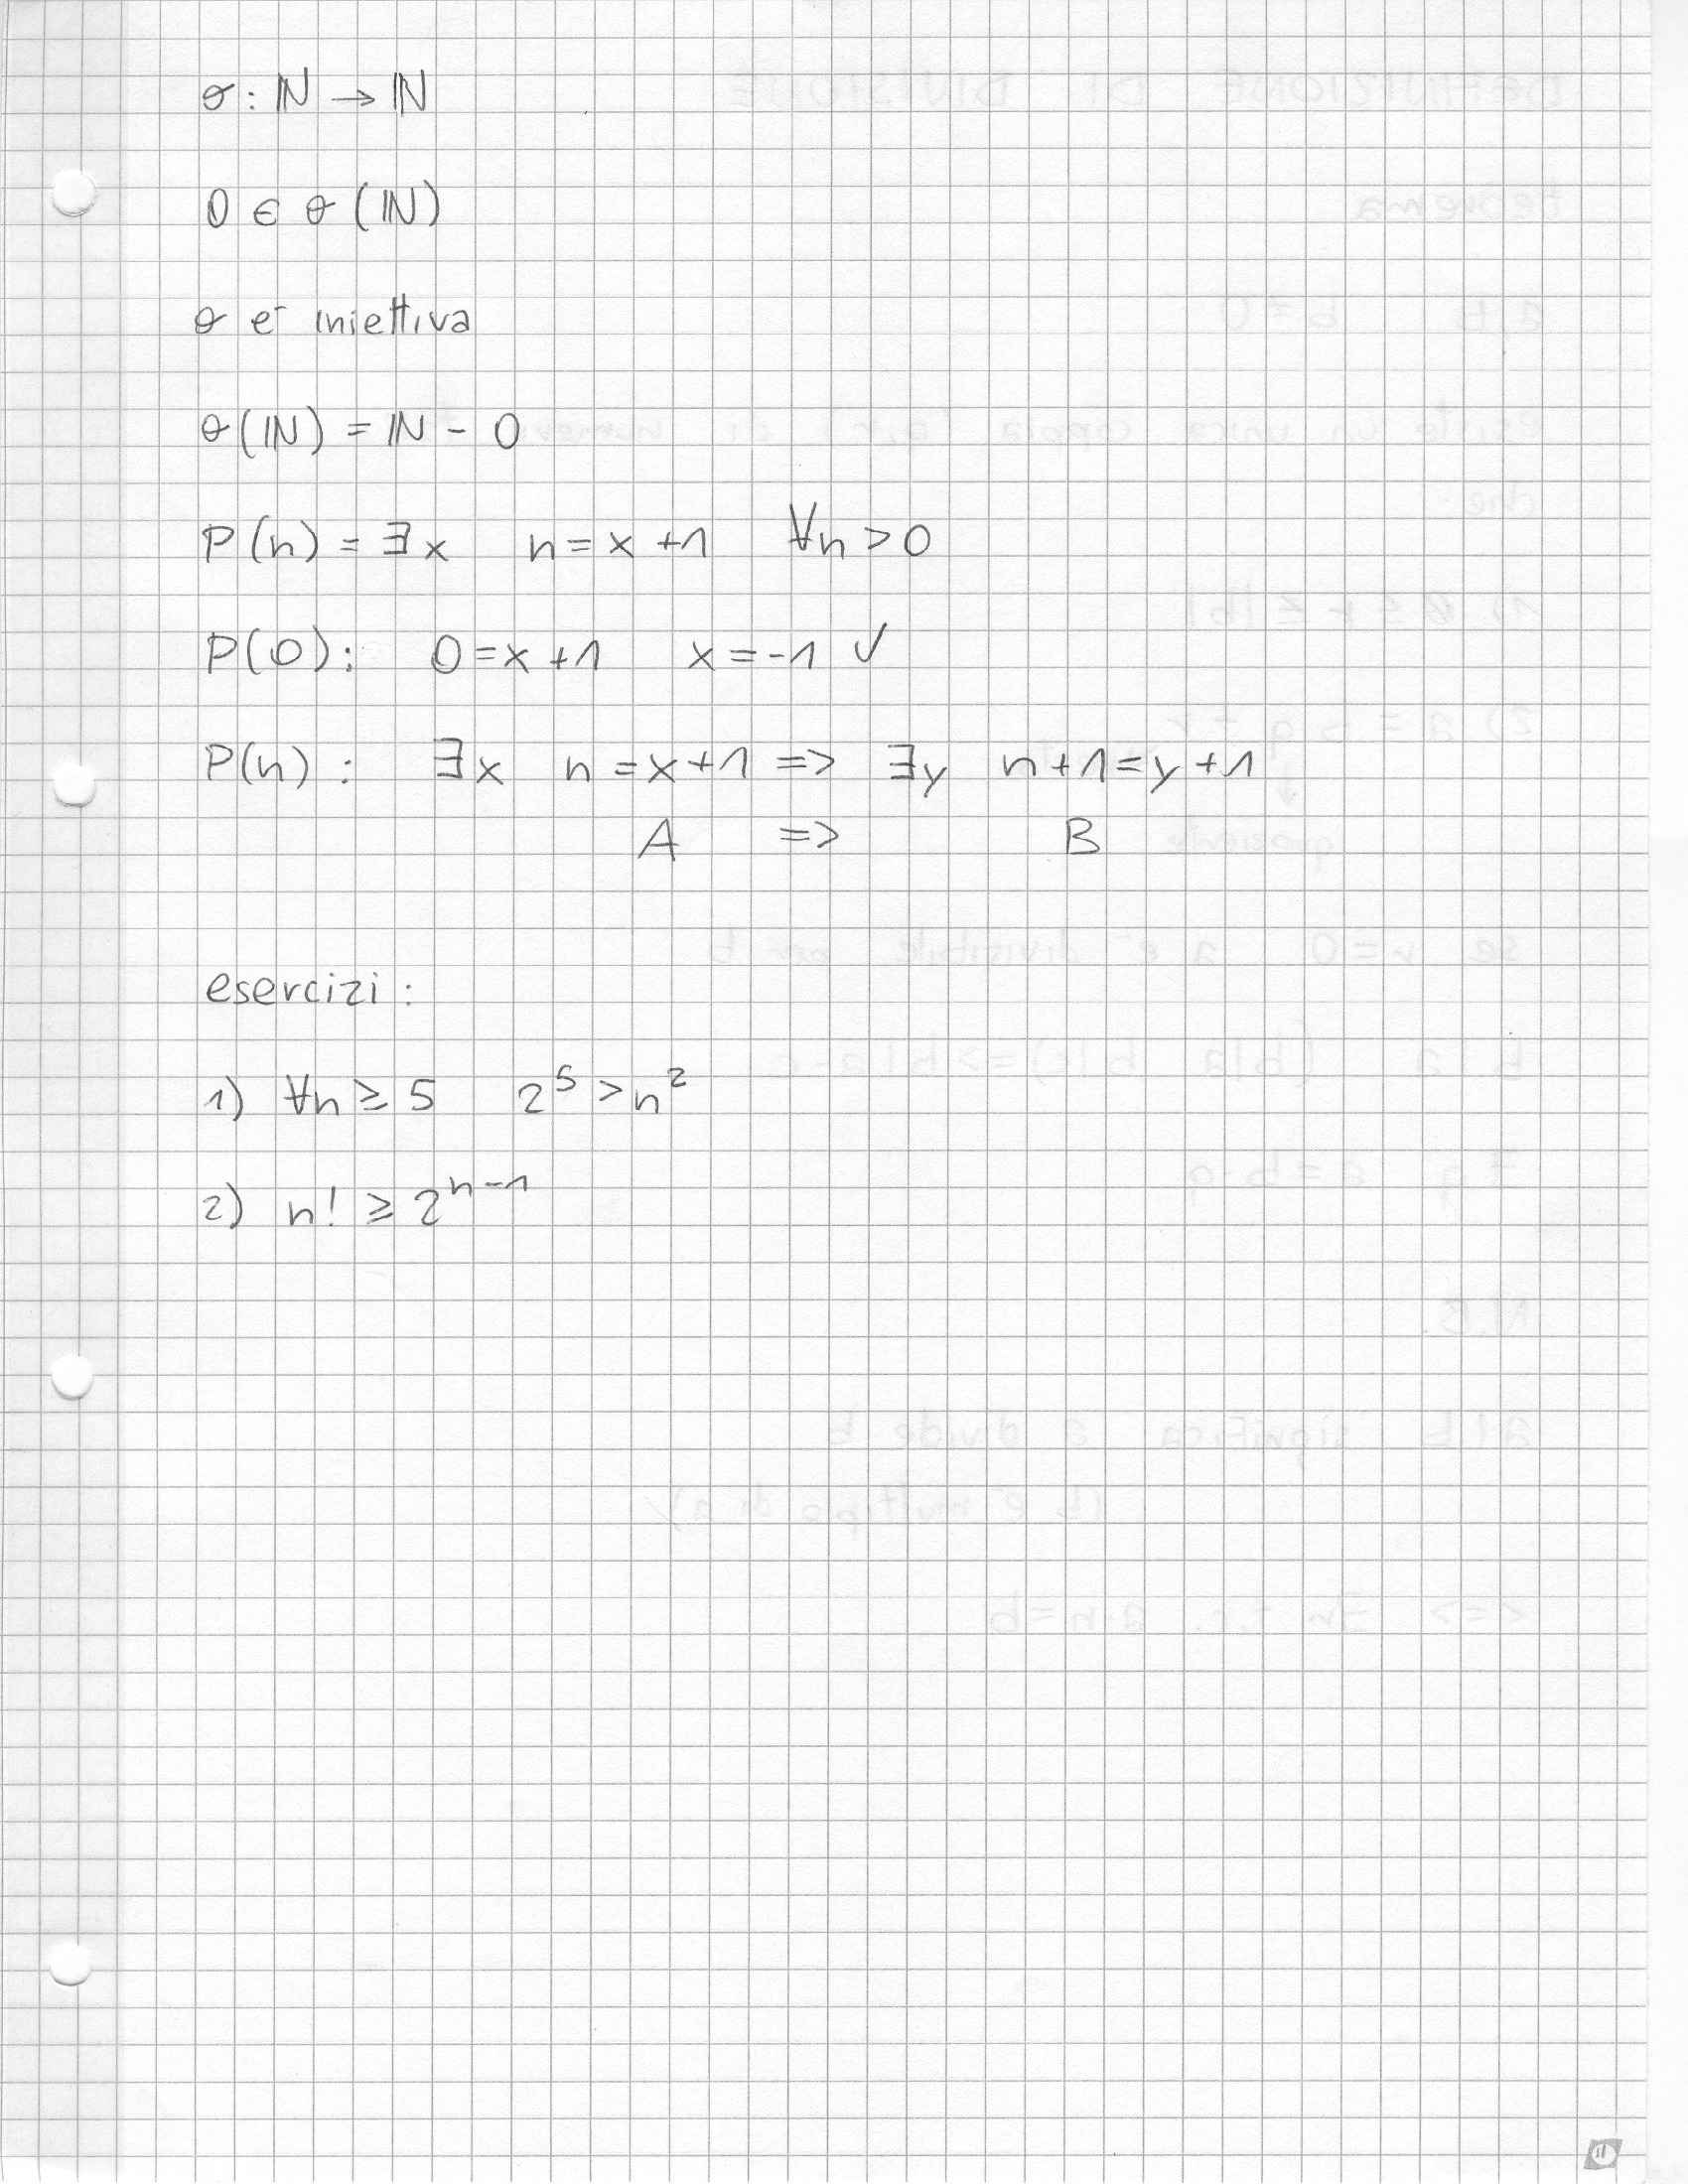 σ: ℕ → ℕ
0 ∈ σ (ℕ)
σ e' iniettiva
σ(ℕ) = ℕ - 0
P(n) = ∃x n = x + 1 ∀n > 0
P(0): 0 = x + 1 x = -1 ✓
P(n): ∃x n = x + 1 => ∃y n + 1 = y + 1
A => B
esercizi:
1) ∀n ≥ 5 2⁵ > n²
2) n! ≥ 2ⁿ⁻¹